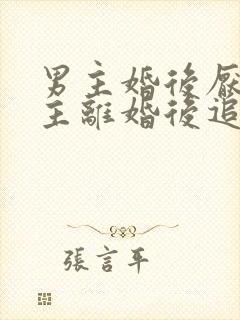 男主婚後厭
主離婚後追
張言平